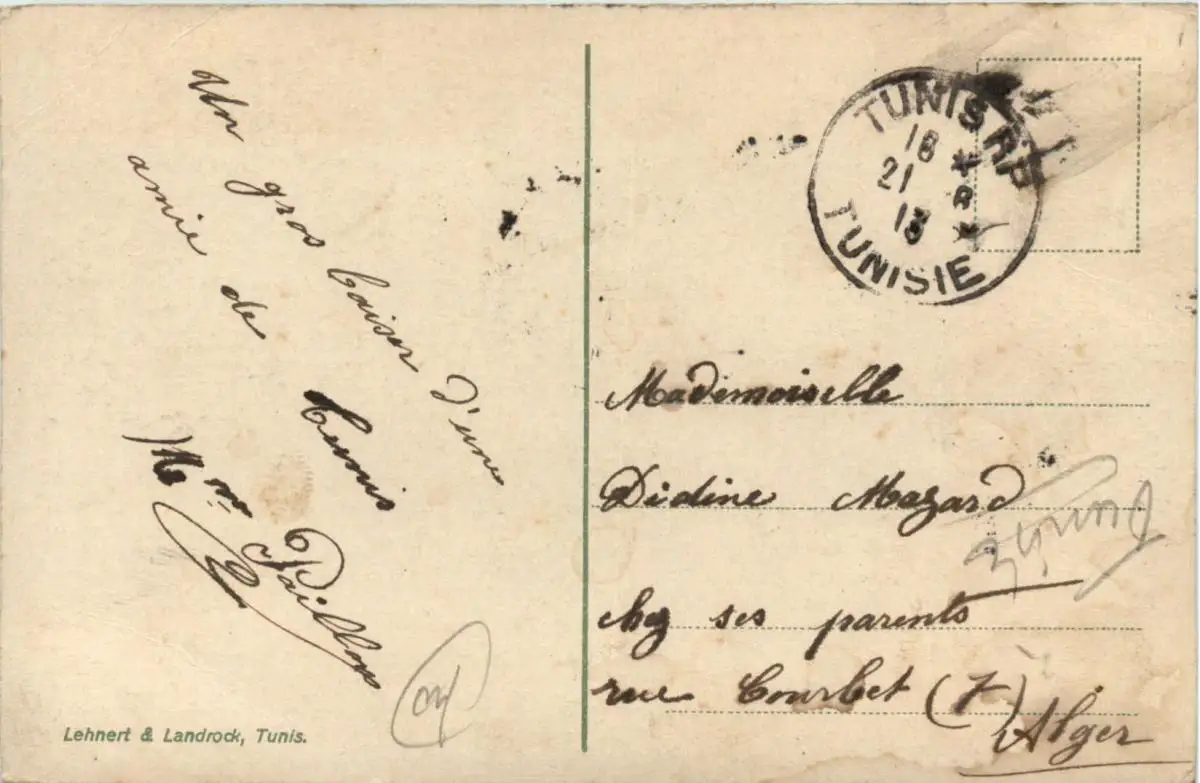 Un gros baiser d'une
amie de Tunis
Mme Paillop
Lehnert & Landrock, Tunis.
TUNIS RP
18
21 8
13
TUNISIE
Mademoiselle
Didine Mazard
chez ses parents
rue Courbet (7)
Alger